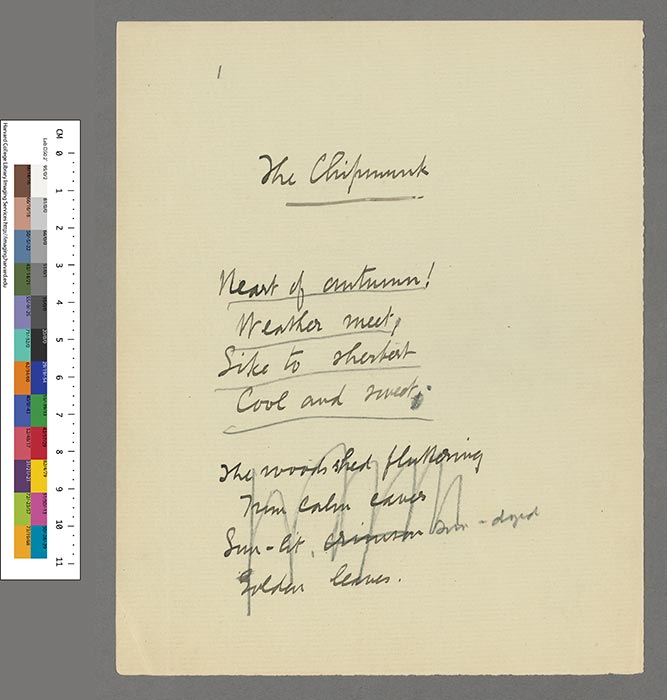 1
The Chipmunk
Heart of autumn!
Weather meet,
Like to sherbert
Cool and sweet.
The woods shed fluttering
From calm eaves
Sun-lit, crimson sun-dyed
Golden leaves.
CM 0 1 2 3 4 5 6 7 8 9 10 11
Harvard College Library Imaging Services http://imaging.harvard.edu